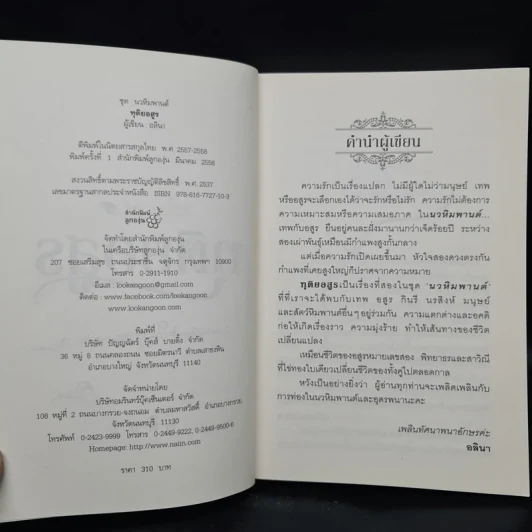 ชุด นวหิมพานต์
ทุติยอสูร
ผู้เขียน อลินา
ตีพิมพ์ในนิตยสารสกุลไทย พ.ศ. 2557-2558
พิมพ์ครั้งที่ 1 สำนักพิมพ์ลูกองุ่น มีนาคม 2558
สงวนสิทธิ์ตามพระราชบัญญัติลิขสิทธิ์ พ.ศ. 2537
เลขมาตรฐานสากลประจำหนังสือ ISBN 978-616-7727-10-3
สำนักพิมพ์
ลูกองุ่น
จัดทำโดยสำนักพิมพ์ลูกองุ่น
ในเครือบริษัทลูกองุ่น จำกัด
207 ซอยเสริมสุข ถนนประชาชื่น จตุจักร กรุงเทพฯ 10900
โทรสาร 0-2911-1910
อีเมล : lookangoon@gmail.com
ติดต่อ : www.facebook.com/lookangoon
www.lookangoon.com
พิมพ์ที่
บริษัท ปัญญฉัตร์ บุ๊คส์ บายดิ้ง จำกัด
36 หมู่ 6 ถนนคลองถนน ซอยมิตรนาวี ตำบลเสาธงหิน
อำเภอบางใหญ่ จังหวัดนนทบุรี 11140
จัดจำหน่ายโดย
บริษัทอมรินทร์บุ๊คเซ็นเตอร์ จำกัด
108 หมู่ที่ 2 ถนนบางกรวย-จงถนอม ตำบลมหาสวัสดิ์ อำเภอบางกรวย
จังหวัดนนทบุรี 11130
โทรศัพท์ 0-2423-9999 โทรสาร 0-2449-9222, 0-2449-9500-6
Homepage: http://www.naiin.com
ราคา 310 บาท
คำนำผู้เขียน
ความรักเป็นเรื่องแปลก ไม่มีผู้ใดไม่ว่ามนุษย์ เทพ
หรืออสูรจะเลือกเองได้ว่าจะรักหรือไม่รัก ความรักไม่ต้องการ
ความเหมาะสมหรือความเสมอภาค ในนวหิมพานต์...
เทพกับอสูร ยืนอยู่คนละฝั่งมานานกว่าเจ็ดร้อยปี ระหว่าง
สองเผ่าพันธุ์เหมือนมีกำแพงสูงกันกลาง
แต่เมื่อความรักเปิดเผยขึ้นมา หัวใจสองดวงตรงกัน
กำแพงที่เคยสูงใหญ่ก็ปราศจากความหมาย
ทุติยอสูรเป็นเรื่องที่สองในชุด 'นวหิมพานต์'
ที่ที่เราจะได้พบกับเทพ อสูร กินรี นรสิงห์ มนุษย์
และสัตว์หิมพานต์อื่นๆ อยู่ร่วมกัน ความแตกต่างและอคติ
ก่อให้เกิดเรื่องราว ความมุ่งร้าย ทำให้เส้นทางของชีวิต
เปลี่ยนแปลง
เหมือนชีวิตของอสูรหมายเลขสอง พิทยาธรและสาวิณี
ที่ไข่ทองใบเดียวเปลี่ยนชีวิตของทั้งคู่ไปตลอดกาล
หวังเป็นอย่างยิ่งว่า ผู้อ่านทุกท่านจะเพลิดเพลินกับ
การท่องในนวหิมพานต์และอุดรพนานะคะ
เพลินทัศนาพนาอักษรค่ะ
อลินา